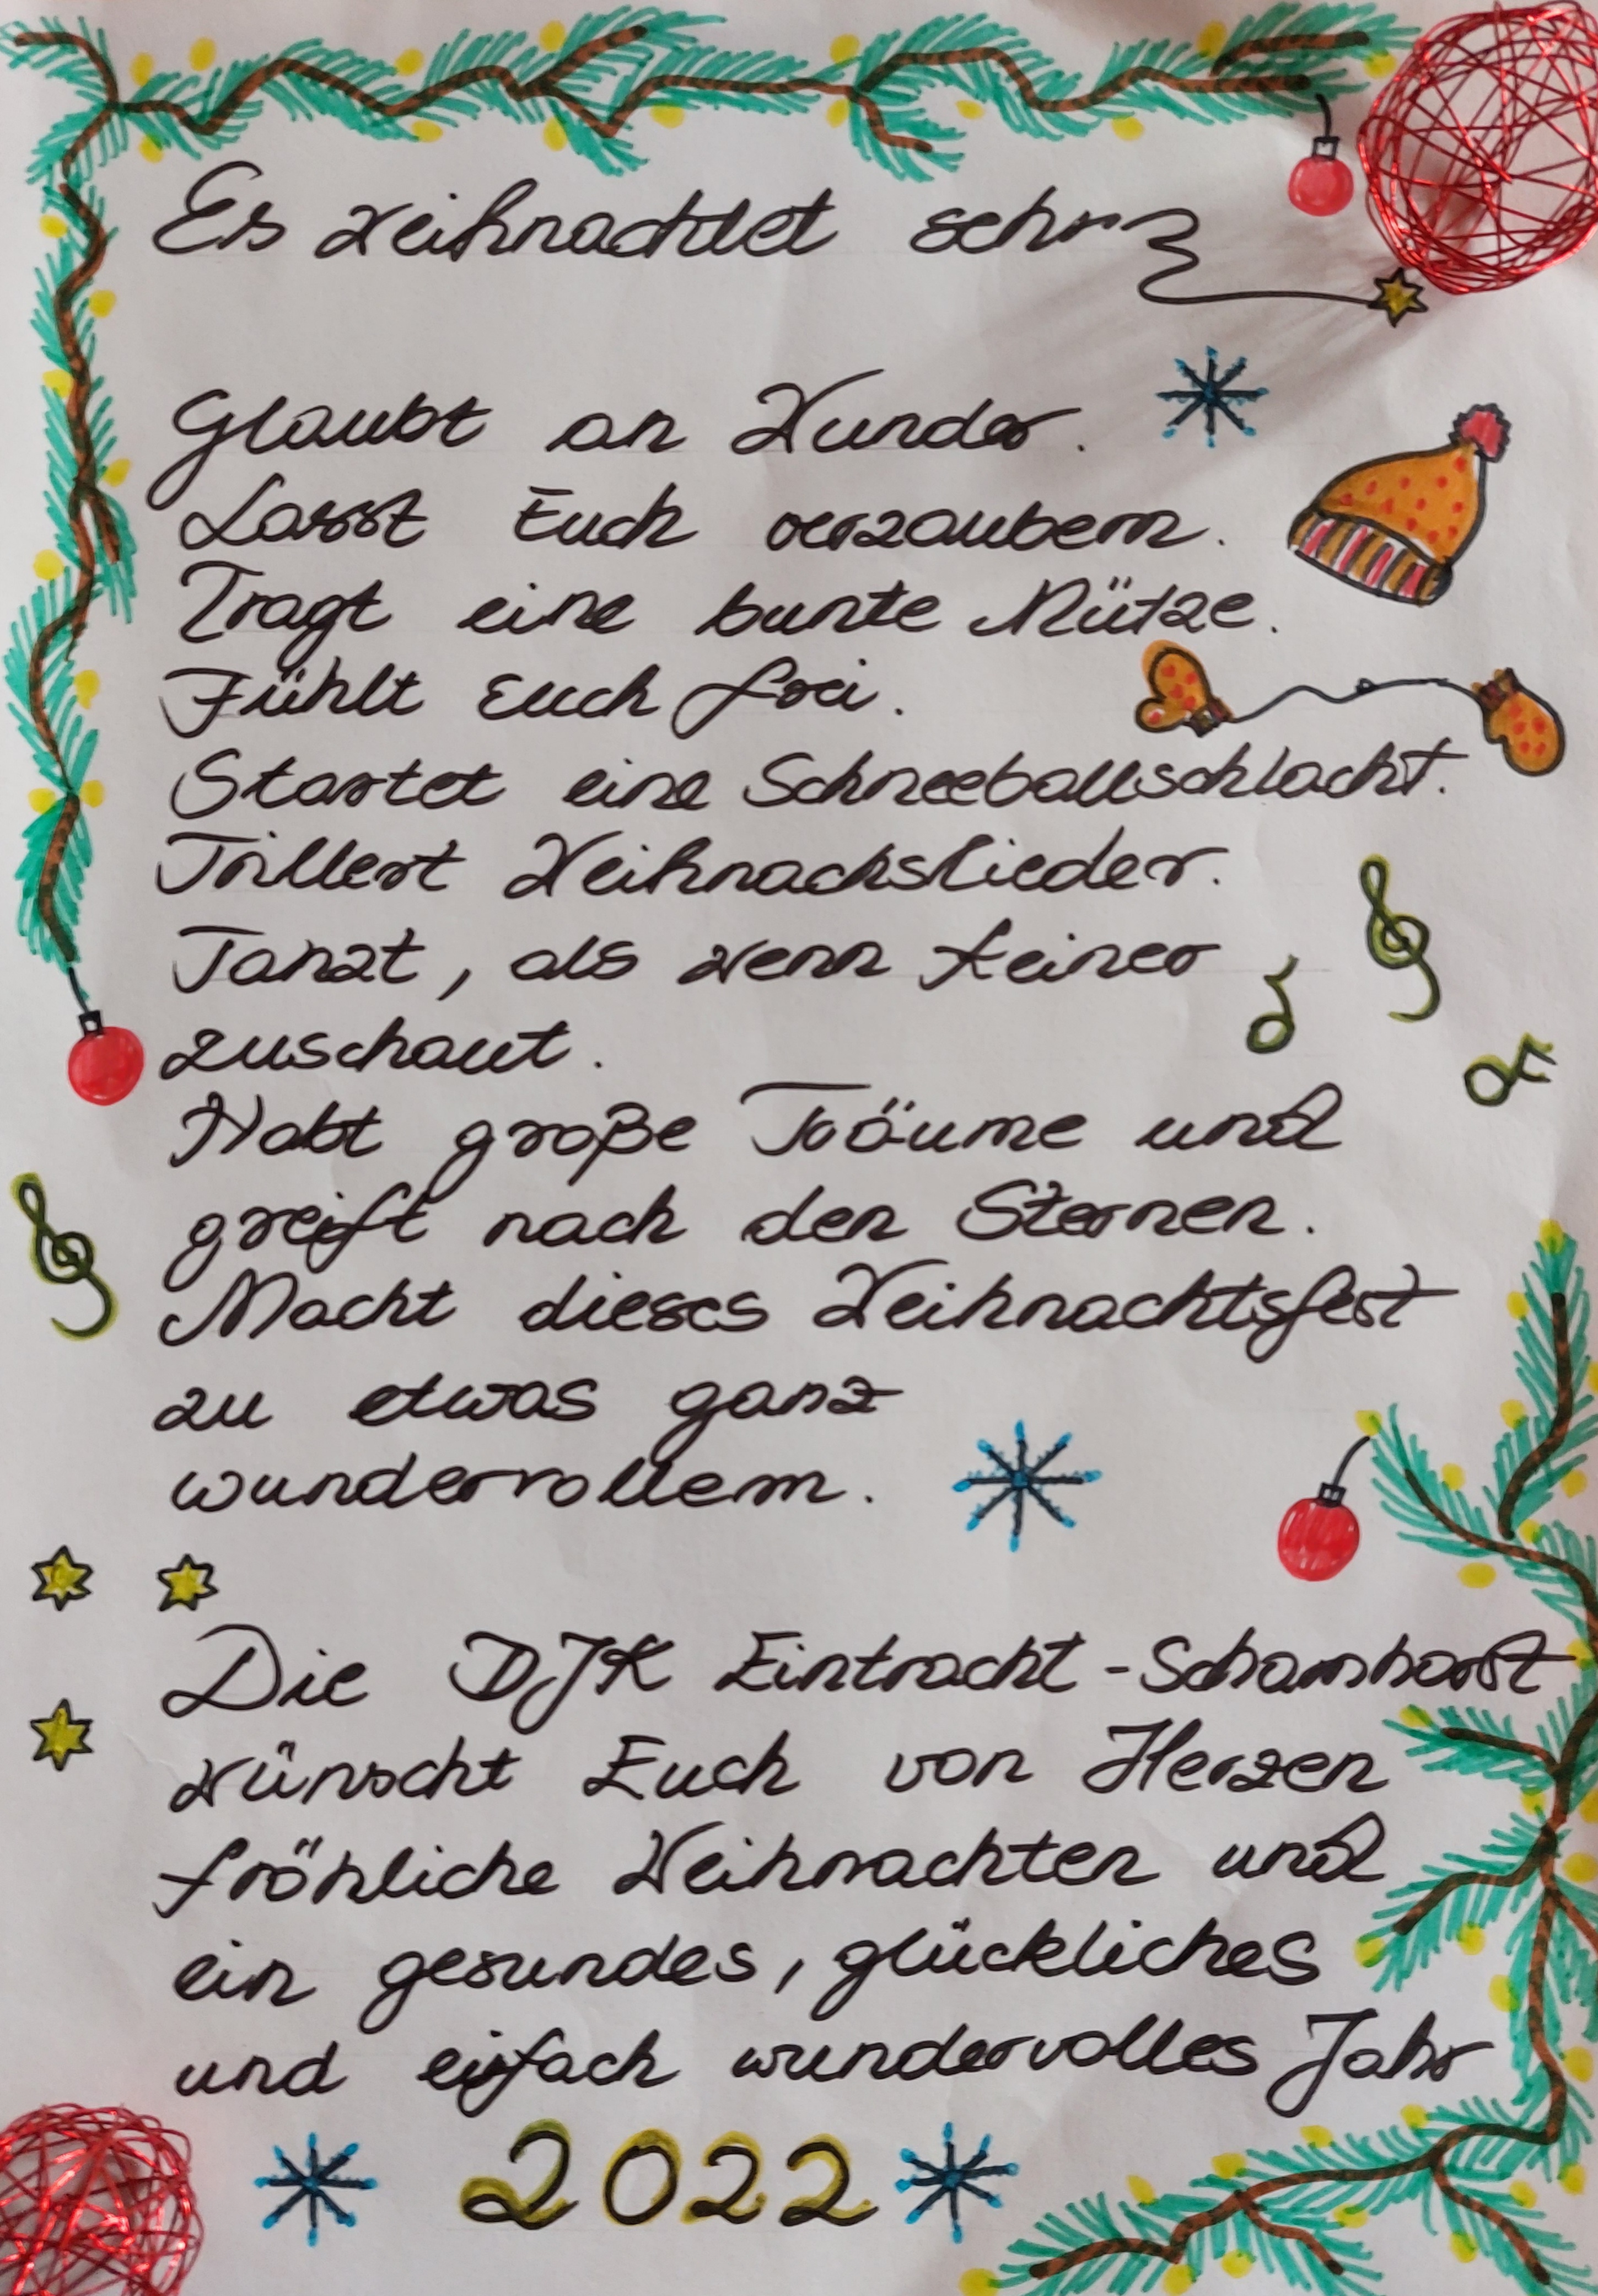 Es weihnachtet sehr
Glaubt an Wunder.
Lasst Euch verzaubern.
Tragt eine bunte Mütze.
Fühlt Euch frei.
Startet eine Schneeballschlacht.
Trillert Weihnachslieder.
Tanzt, als wenn keiner
zuschaut.
Habt große Träume und
greift nach den Sternen.
Macht dieses Weihnachtsfest
zu etwas ganz
wundervollem.
Die DJK Eintracht-Scharnhorst
wünscht Euch von Herzen
fröhliche Weihnachten und
ein gesundes, glückliches
und einfach wundervolles Jahr
2022